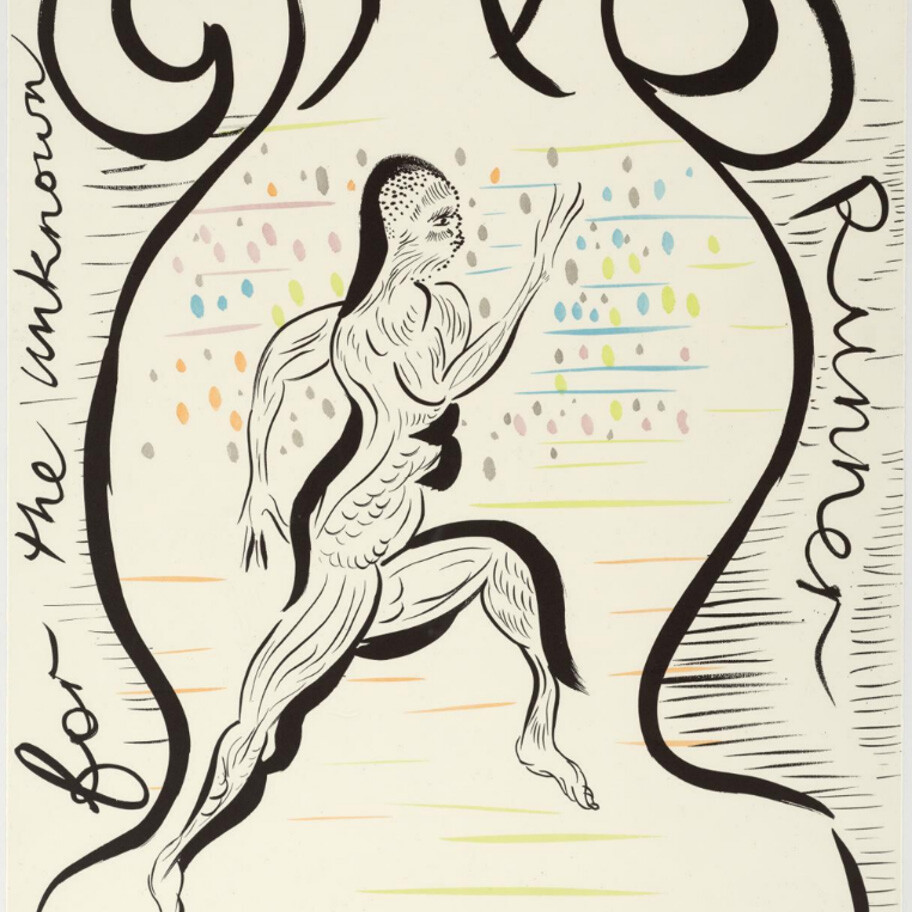 for the Unknown
Runner